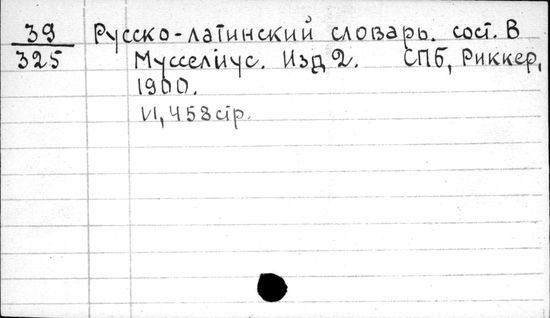 39 Русско-латинский словарь. сост. В
325 Мусселіус. Изд 2. СПб, Риккер,
1900.
VI, 458 стр.